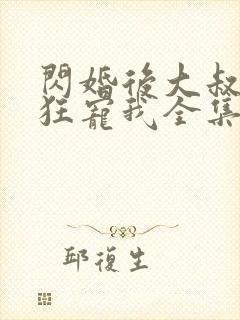 閃婚後大叔
狂寵我全集
邱復生